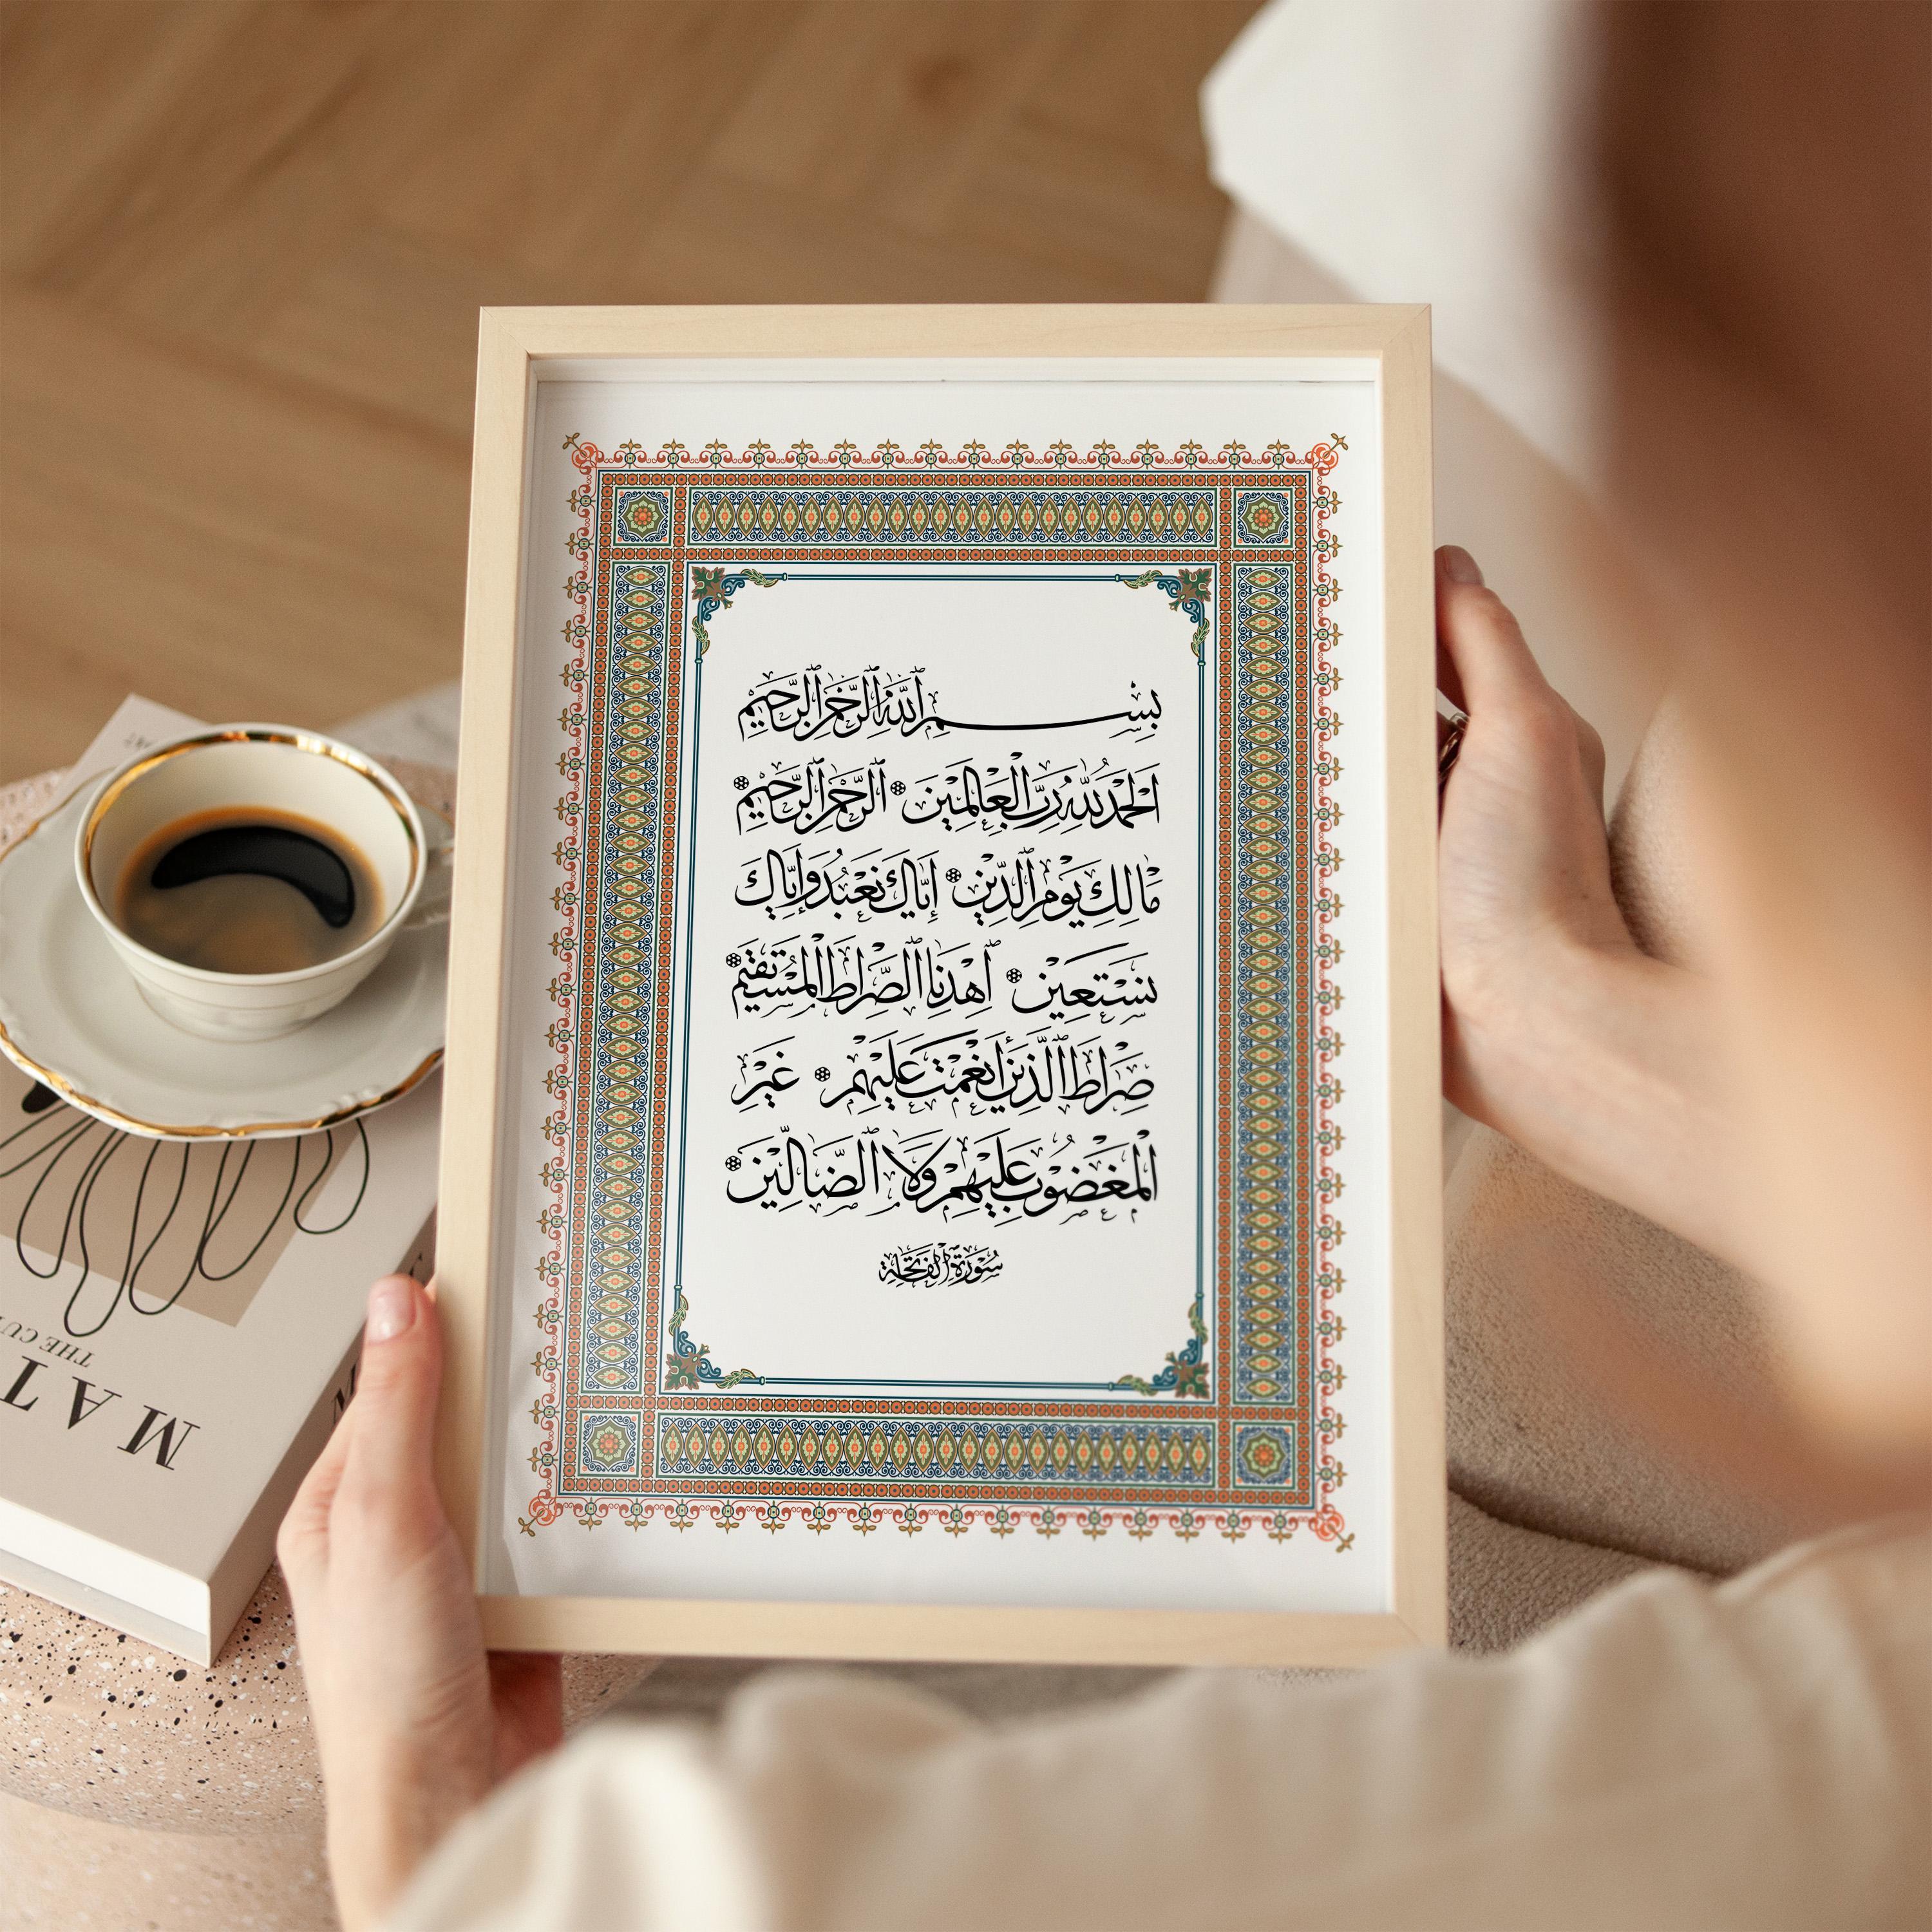 بِسْمِ ٱللَّهِ ٱلرَّحْمَٰنِ ٱلرَّحِيمِ
اَلْحَمْدُ لِلَّهِ رَبِّ الْعَالَمِينَ ۞ ٱلرَّحْمَٰنِ ٱلرَّحِيمِ ۞
مَالِكِ يَوْمِ ٱلدِّينِ ۞ إِيَّاكَ نَعْبُدُ وَإِيَّاكَ
نَسْتَعِينُ ۞ ٱهْدِنَا ٱلصِّرَاطَ الْمُسْتَقِيمَ ۞
صِرَاطَ ٱلَّذِينَ أَنْعَمْتَ عَلَيْهِمْ ۞ غَيْرِ
الْمَغْضُوبِ عَلَيْهِمْ وَلَا ٱلضَّالِّينَ ۞
سُورَةُ الْفَاتِحَة
THE
MAT